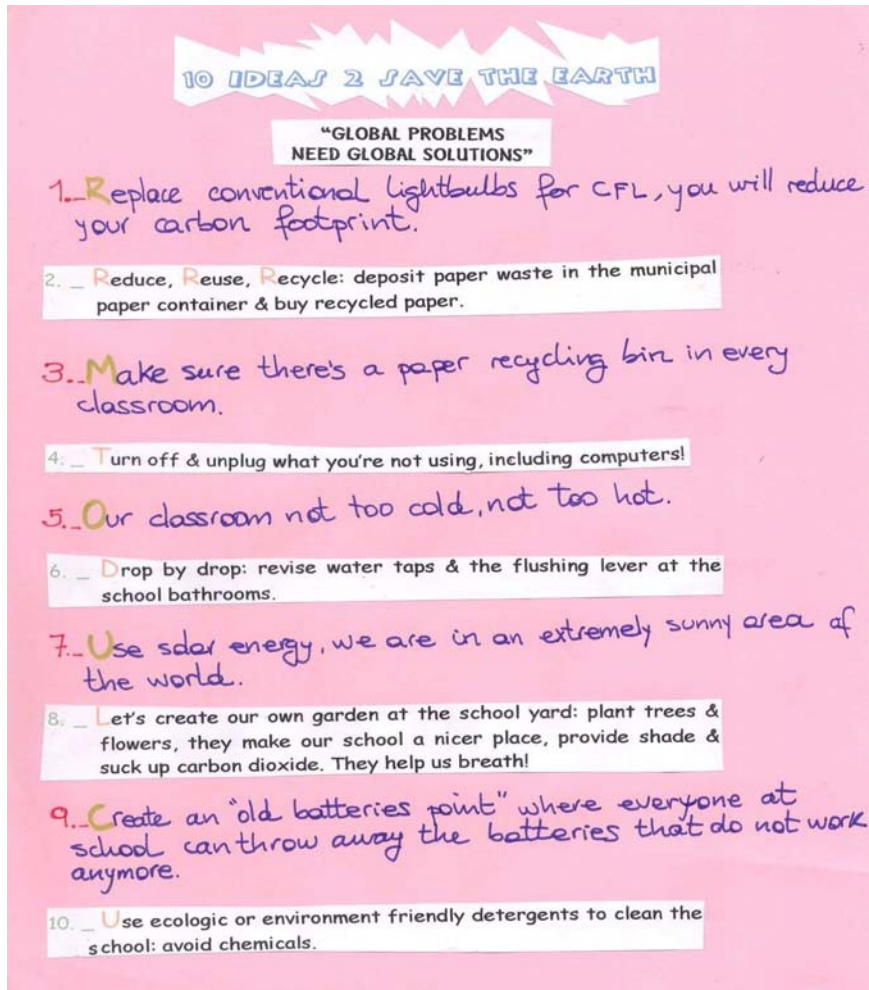 10 IDEAS 2 SAVE THE EARTH
“GLOBAL PROBLEMS
NEED GLOBAL SOLUTIONS”
1._Replace conventional lightbulbs for CFL, you will reduce
your carbon footprint.
2. _ Reduce, Reuse, Recycle: deposit paper waste in the municipal
paper container & buy recycled paper.
3._Make sure there's a paper recycling bin in every
classroom.
4. _ Turn off & unplug what you're not using, including computers!
5._Our classroom not too cold, not too hot.
6. _ Drop by drop: revise water taps & the flushing lever at the
school bathrooms.
7._Use solar energy, we are in an extremely sunny area of
the world.
8. _ Let's create our own garden at the school yard: plant trees &
flowers, they make our school a nicer place, provide shade &
suck up carbon dioxide. They help us breath!
9._Create an "old batteries point" where everyone at
school can throw away the batteries that do not work
anymore.
10. _ Use ecologic or environment friendly detergents to clean the
school: avoid chemicals.